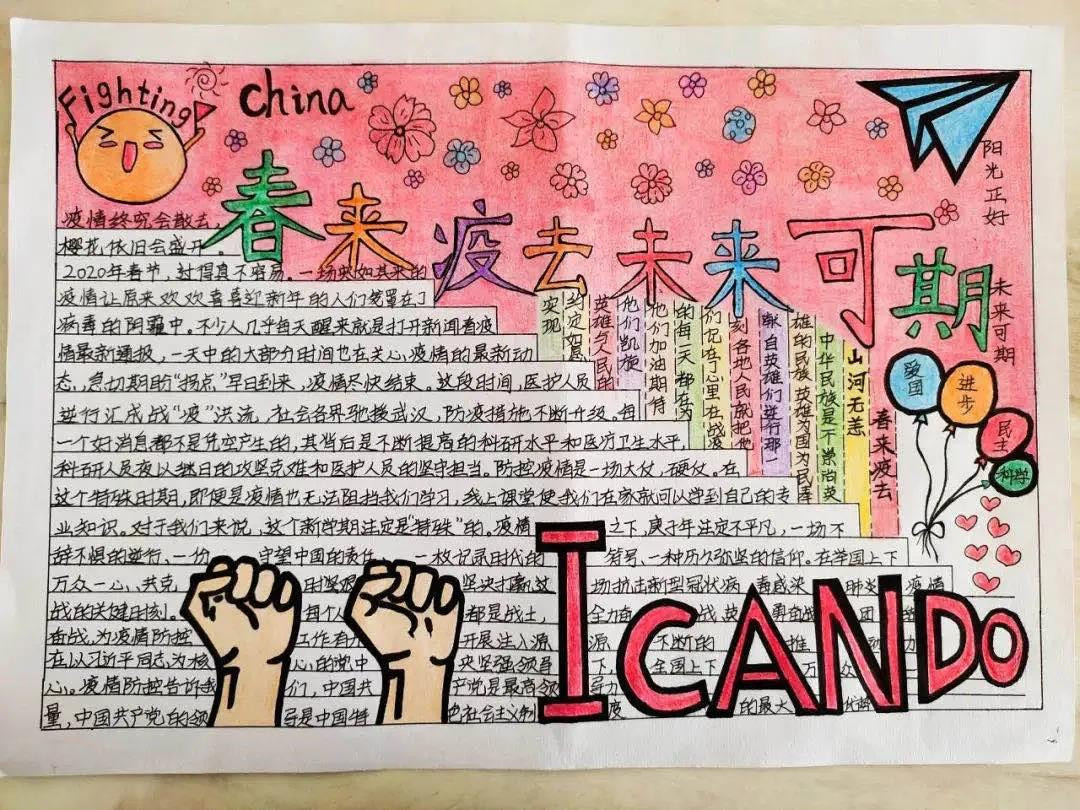 Fighting
china
春来疫去未来可期
阳光正好
未来可期
疫情终究会散去，
樱花依旧会盛开。
2020年春节，过得真不容易。一场突如其来的
疫情让原来欢欢喜喜迎新年的人们笼罩在了
病毒的阴霾中。不少人几乎每天醒来就是打开新闻看疫
情最新通报，一天中的大部分时间也在关心疫情的最新动
态，急切期盼“拐点”早日到来，疫情尽快结束。这段时间，医护人员
逆行汇成战“疫”洪流，社会各界驰援武汉，防疫措施不断升级。每
一个好消息都不是凭空产生的，其背后是不断提高的科研水平和医疗卫生水平，
科研人员夜以继日的攻坚克难和医护人员的坚守担当。防控疫情是一场大仗，硬仗。在
这个特殊时期，即便是疫情也无法阻挡我们学习，线上课堂使我们在家就可以学到自己的专
业知识。对于我们来说，这个新学期注定是“特殊”的。疫情 之下，庚子年注定不平凡，一场不
辞不惧的逆行、一份 守望中国的责任 一枚记录时代的 符号、一种历久弥坚的信仰。在举国上下
万众一心、共克 时坚艰 坚决打赢这 场抗击新型冠状病 毒感染 肺炎 疫情
战的关键时刻。 每个人 都是战士， 全力奋 战
奋战，为疫情防控 工作有 开展注入源 源 不断的
在以习近平同志为核 心的党中 央坚强领导 下， 全国上下 万众
心。疫情防控告诉我 们，中国共 产党是最高领 导力
量，中国共产党的领 导是中国特 色社会主义制 度 的最大 优势
春来疫去
山河无恙
中华民族是不崇尚英
雄的民族 英雄为国为民库
献自英雄们逆行那
刻各地人民就把他
们记在了心里在战疫
的每一天 都在为
他们加油期待
他们凯旋
英雄与人民的
约定如愿
实现
爱国
进步
民主
科学
I CAN DO